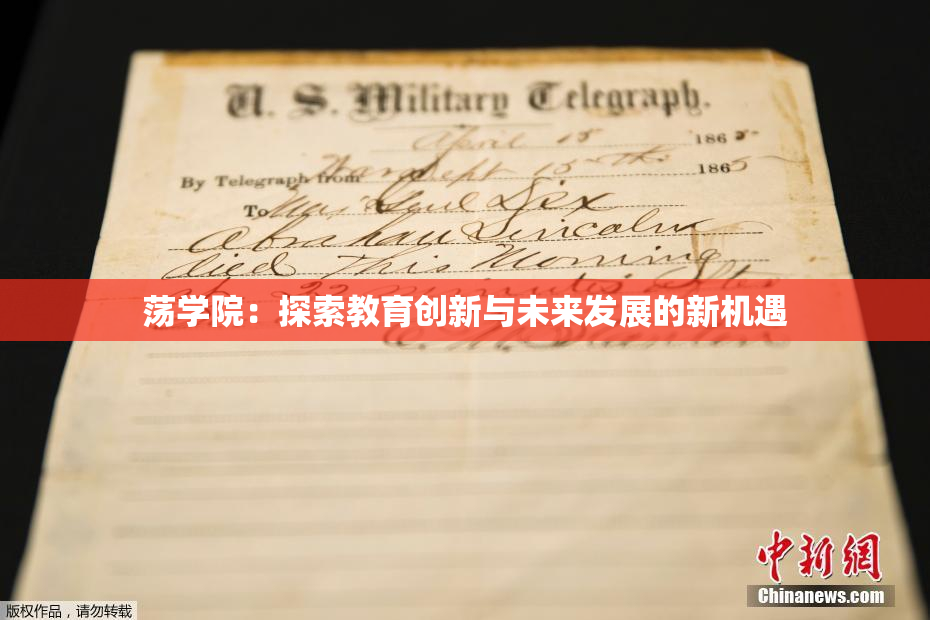 U. S. Military Telegraph.
April 15 1865
By Telegraph from War Dept 15th 1865
To Maj Genl Dix
Abraham Lincoln
died This Morning
at 22 minutes after
荡学院：探索教育创新与未来发展的新机遇
中新网
Chinanews.com
版权作品，请勿转载